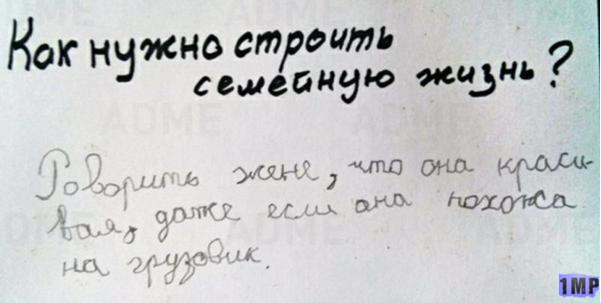 Как нужно строить
семейную жизнь?
Говорить жене, что она краси-
вая, даже если она похожа
на грузовик.
ADME
ADME
ADME
ADME
ADME
ADME
1MP